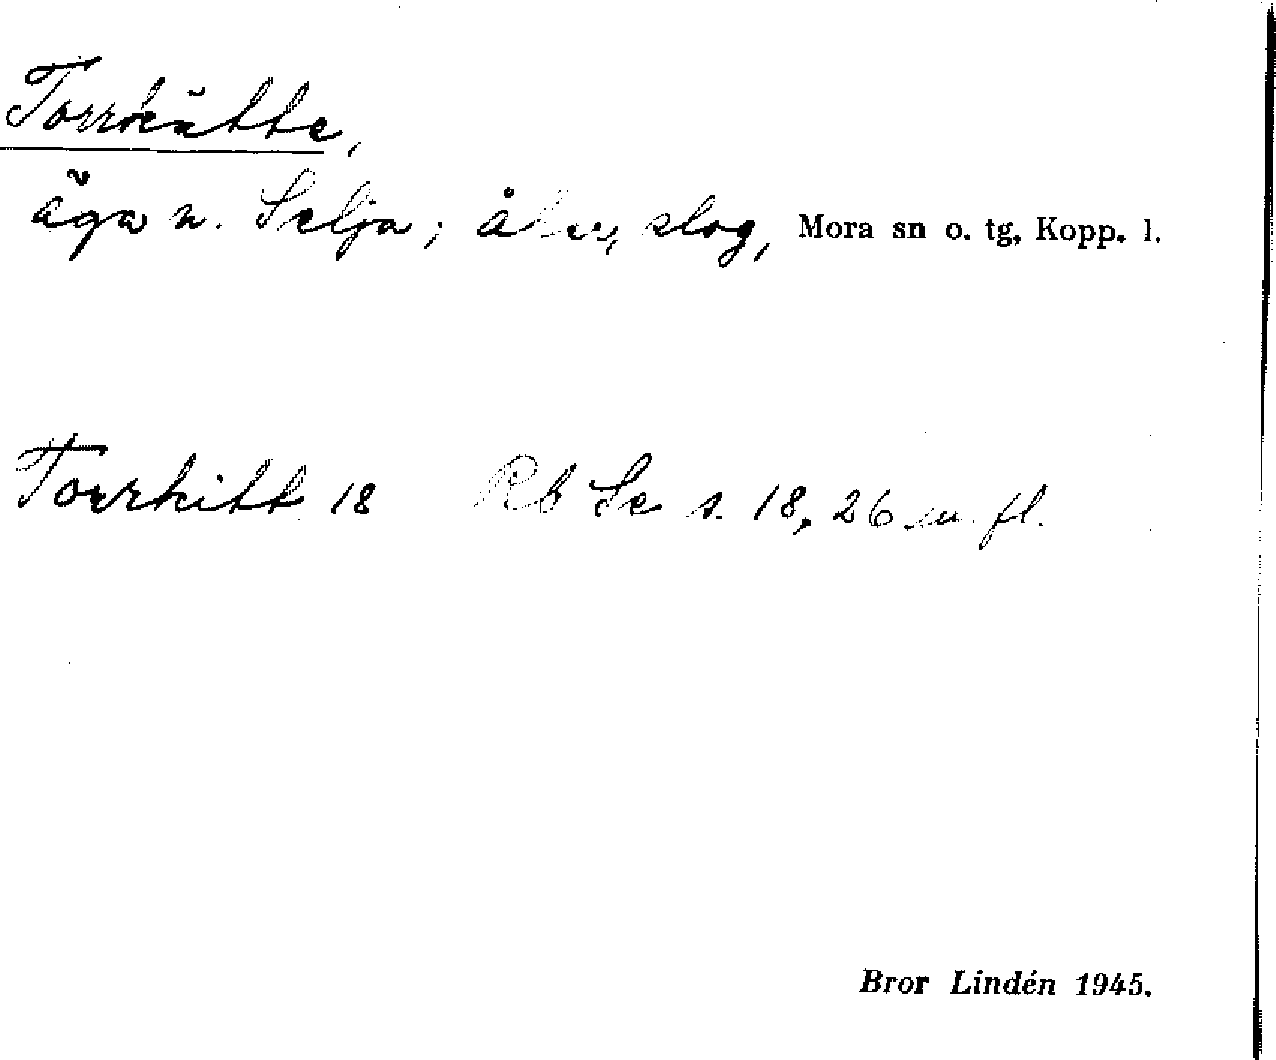 Torrkätte,
äga n. Selja; åker, slog, Mora sn o. tg, Kopp. l.
Torrkitt 18 Rb Se s. 18, 26 m. fl.
Bror Lindén 1945.